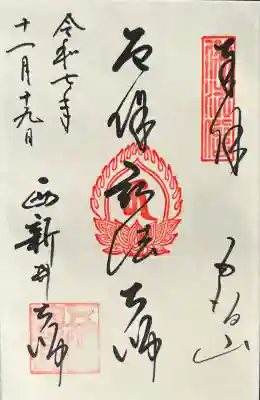 奉拝
五智山
厄除弘法大師
令和七年
十一月十九日
西新井大師